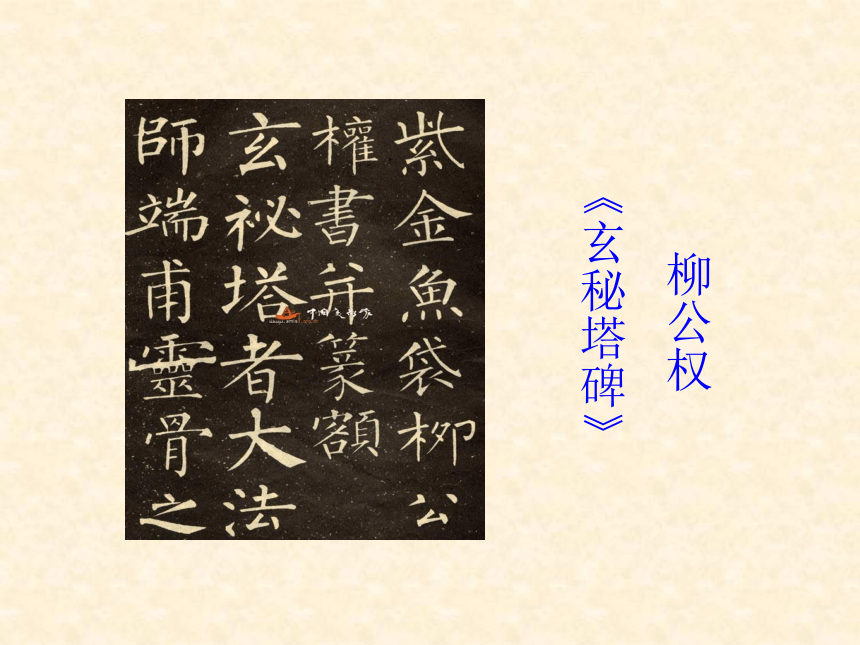 柳公权
《玄秘塔碑》
紫金魚袋柳公
權書并篆額
玄祕塔者大法
師端甫靈骨之